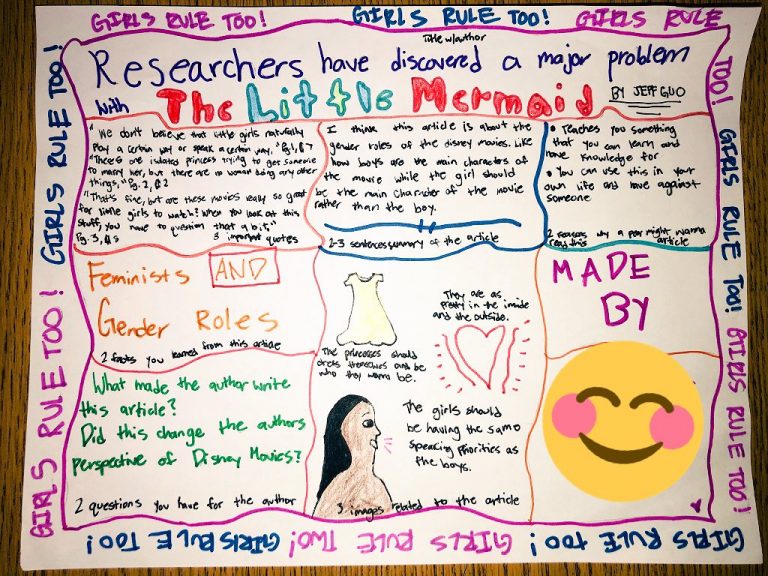 GIRLS RULE TOO! GIRLS RULE TOO! GIRLS RULE
TOO! GIRLS RULE TOO! GIRLS RULE TOO!
GIRLS RULE TOO! GIRLS RULE TOO!
GIRLS RULE TWO! GIRLS RULE TOO! GIRLS RULE TOO!
GIRLS RULE TOO! GIRLS RULE TOO!
title w/author
Researchers have discovered a major problem
with The Little Mermaid BY JEFF GUO
"We don't believe that little girls naturally
play a certain way or speak a certain way." Pg. 1, P 7
"There's one isolated princess trying to get someone
to marry her, but there are no women doing any other
things." Pg. 2, P 2
"That's fine, but are these movies really so great
for little girls to watch? When you look at this
stuff, you have to question that a bit."
Pg. 3, P 3
3 important quotes
I think this article is about the
gender roles of the disney movies. Like
how boys are the main characters of
the movie while the girl should
be the main character of the movie
rather than the boy.
2-3 sentences summary of the article
• Teaches you something
that you can learn and
have knowledge for
• You can use this in your
own life and have against
someone
2 reasons why a peer might wanna
read this article
Feminists AND
Gender Roles
2 facts you learned from this article
The princesses should
dress themselves and be
who they wanna be.
They are as
pretty in the inside
and the outside.
The girls should
be having the same
speaking priorities as
the boys.
3 images related to the article
MADE
BY
What made the author write
this article?
Did this change the authors
perspective of Disney Movies?
2 questions you have for the author